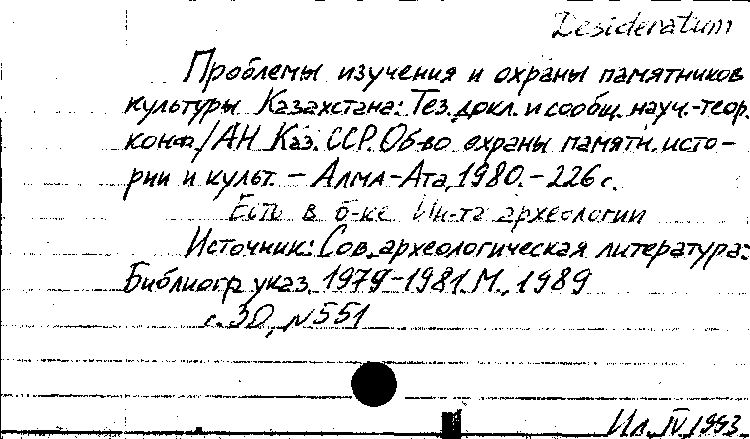 Desideratum
Проблемы изучения и охраны памятников
культуры Казахстана: Тез. докл. и сообщ. науч.-теор.
конф. / АН Каз. ССР. Об-во охраны памятн. исто-
рии и культ. – Алма-Ата, 1980. – 226 с.
Есть в б-ке Ин-та археологии
Источник: Сов. археологическая литература:
Библиогр. указ. 1979-1981. М., 1989
с. 30, №551
Ил. IV. 1993